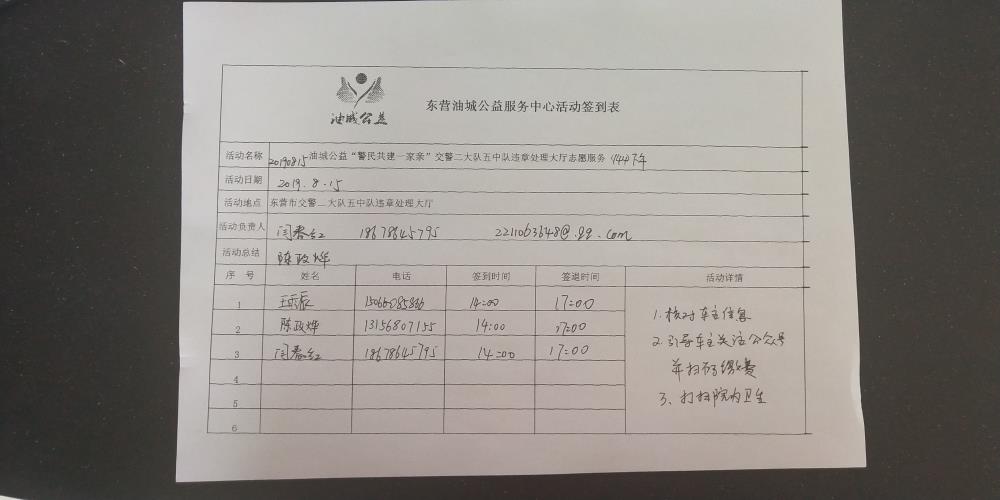 油城公益
东营油城公益服务中心活动签到表
活动名称 20190815油城公益“警民共建一家亲”交警二大队五中队违章处理大厅志愿服务 144下午
活动日期 2019.8.15
活动地点 东营市交警二大队五中队违章处理大厅
活动负责人 闫春红 18678645795 2211063648@.qq.com
活动总结 陈政烨
序 号 姓名 电话 签到时间 签退时间 活动详情
1 14:00 17:00
2 陈政烨 13156807155 14:00 17:00
3 闫春红 18678645795 14:00 17:00
4
5
6
1.核对车主信息
2.引导车主关注公众号
并扫码缴费
3、打扫院内卫生